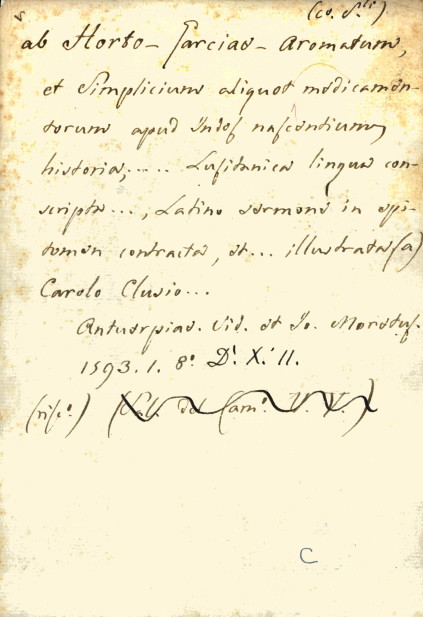 (co. S.ti)
ab Horto - Garciae - Aromatum,
et Simplicium aliquot medicamen-
torum apud Indos nascentium
historia, ..... Lusitanica lingua con-
scripta ..., Latino sermone in epi-
tomen contracta, et ... illustrata (a)
Carolo Clusio ...
Antuerpiae. Vid. et Jo. Moretus.
1593. 1. 8.° D.' X.' 11.
(ris.°)
C